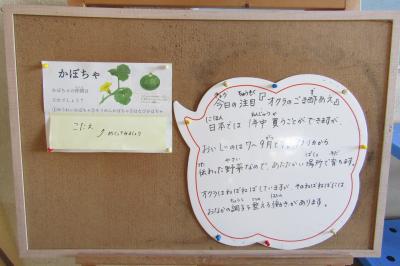 かぼちゃ
かぼちゃの仲間は
どれでしょう？
こたえ
めくってみましょう
今日の注目『オクラのごま酢あえ』
日本では1年中買うことができますが、
おいしいのは7〜9月
伝わった野菜なので、あたたかい場所で育ちます。
オクラはねばねばしていますが、そのねばねばには
おなかの調子を整える働きがあります。